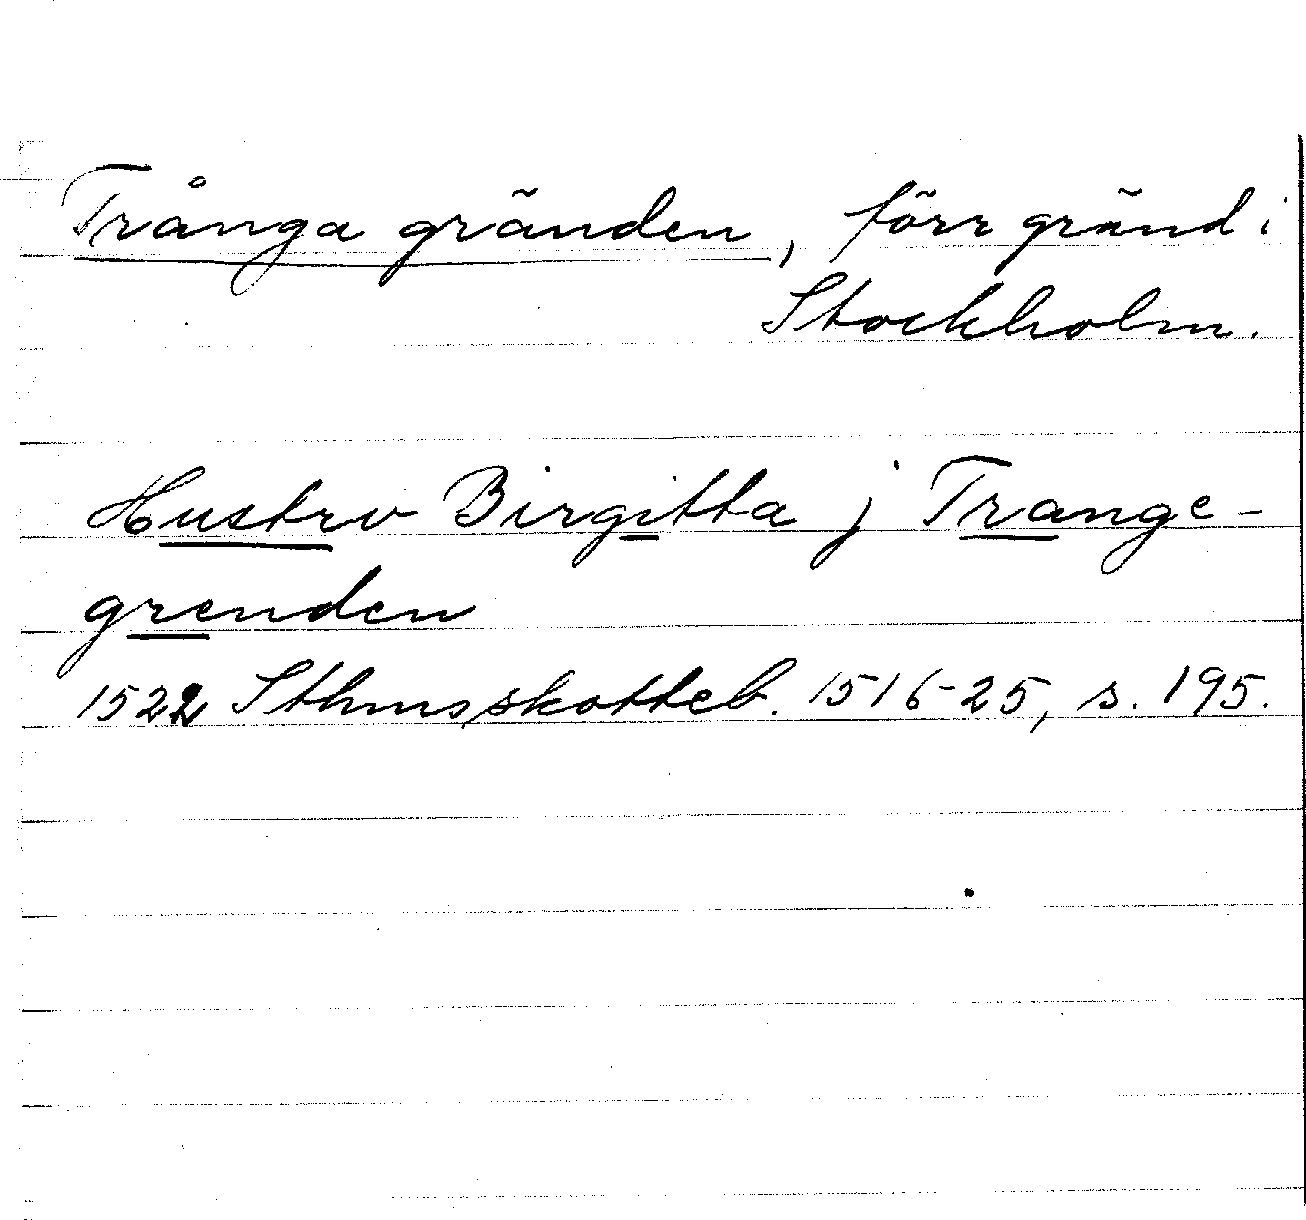 Trånga gränden, förr gränd i
Stockholm.
Hustrv Birgitta j Trange-
grenden
1522 Sthms skotteb. 1516-25, s. 195.